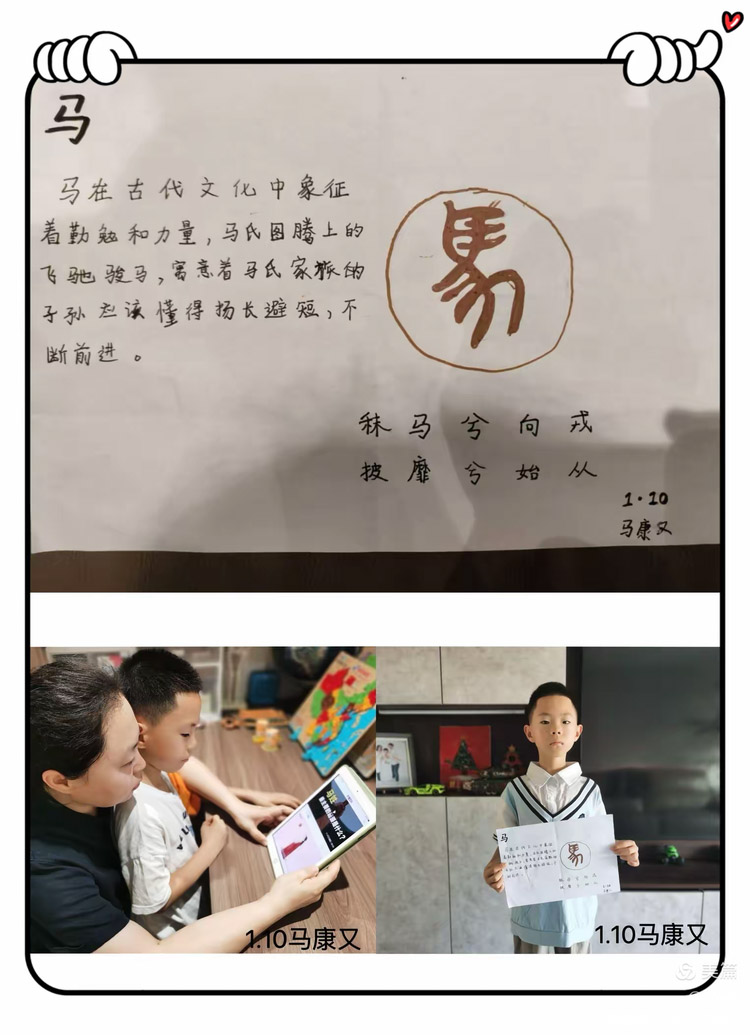 马
马在古代文化中象征
着勤勉和力量，马氏图腾上的
飞驰骏马，寓意着马氏家族的
子孙应该懂得扬长避短，不
断前进。
馬
秣马兮向戎
披靡兮始从
1·10
马康又
1.10马康又
马
馬
1.10马康又
美篇